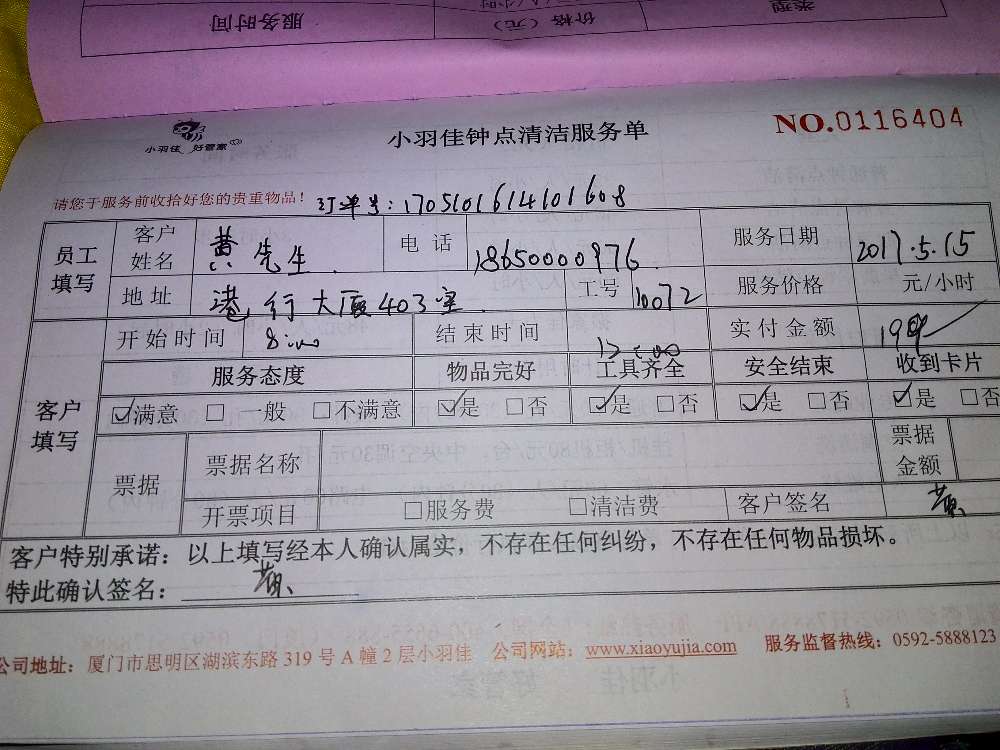 服务时间 价格（元） 类型
小羽佳 好管家
小羽佳钟点清洁服务单
NO.0116404
请您于服务前收拾好您的贵重物品！ 订单号：1705101614101608
员工填写 客户姓名 黄先生 电话 18650000976 服务日期 2017.5.15
地址 港行大厦403室 工号 10072 服务价格 元/小时
客户填写 开始时间 8:00 结束时间 12:00 实付金额
服务态度 物品完好 工具齐全 安全结束 收到卡片
☑满意 □一般 □不满意 ☑是 □否 ☑是 □否 ☑是 □否 ☑是 □否
票据 票据名称 票据金额
开票项目 □服务费 □清洁费 客户签名 黄
客户特别承诺：以上填写经本人确认属实，不存在任何纠纷，不存在任何物品损坏。
特此确认签名：黄
公司地址：厦门市思明区湖滨东路319号A幢2层小羽佳 公司网站：www.xiaoyujia.com 服务监督热线：0592-5888123